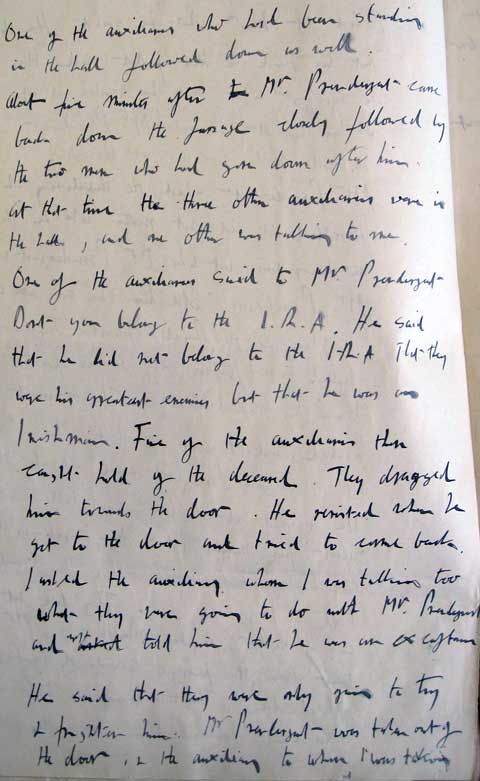 One of the auxiliaries who had been standing
in the hall followed down as well.
About five minutes after Mr. Prendergast came
back down the passage closely followed by
the two men who had gone down after him.
At that time the three other auxiliaries were in
the hall, and one other was talking to me.
One of the auxiliaries said to Mr. Prendergast
Dont you belong to the I.R.A. He said
that he did not belong to the I.R.A that they
were his greatest enemies but that he was an
Irishman. Five of the auxiliaries then
caught hold of the deceased. They dragged
him towards the door. He resisted when he
got to the door and tried to come back.
I asked the auxiliary whom I was talking too
what they were going to do with Mr. Prendergast
and told him that he was an ex captain
He said that they were only going to try
& frighten him. Mr Prendergast was taken out of
the door, & the auxiliary to whom I was talking